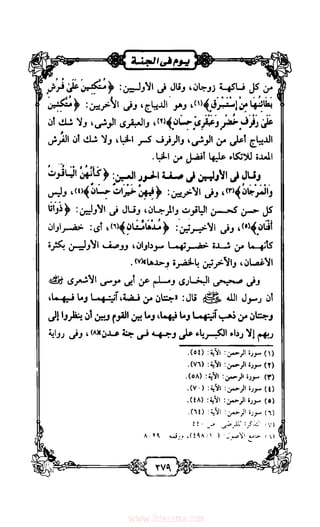 يوم فى الجنة
من كل فـاكهـة زوجان، وقال وفى الأوليـين: ﴿ مُتَّكِئِينَ عَلَىٰ فُرُشٍ
بَطَائِنُهَا مِنْ إِسْتَبْرَقٍ ﴾(١)، وهو الديباج، وفى الأخريين: ﴿ مُتَّكِئِينَ
عَلَىٰ رَفْرَفٍ خُضْرٍ وَعَبْقَرِيٍّ حِسَانٍ ﴾(٢)، والعبقرى الوشى، ولا شك أن
الديباج أعلى من الوشى، والرفرف كسر الخبا، ولا شك أن الفرش
المعدة للاتكاء عليها أفضل من الخبا.
وقـال فى الأوليـين فى صـفـة الحـور العـين: ﴿ كَأَنَّهُنَّ الْيَاقُوتُ
وَالْمَرْجَانُ ﴾(٣)، وفى الأخريين: ﴿ فِيهِنَّ خَيْرَاتٌ حِسَانٌ ﴾(٤)، وليس
كل حسن كحسن الياقوت والمرجان، وقـال فى الأوليـين: ﴿ ذَوَاتَا
أَفْنَانٍ ﴾(٥)، وفى الأخيرتين: ﴿ مُدْهَامَّتَانِ ﴾(٦)، أى: خضراوان
كأنهـما من شـدة خضـرتهـما سوداوان، ووصف الأوليـين بكثرة
الأغصان، والأخرتين بالخضرة وحدها(٧).
وفى صحيحى البخـارى ومسلم عن أبى موسى الأشعرى ﷺ
أن رسول الله ﷺ قال: «جنتان من فضة، آنيتهما وما فيهما،
وجنتان من ذهب آنيتهما وما فيهما، وما بين القوم وبين أن ينظروا إلى
ربهم إلا رداء الكبرياء على وجهه فى جنة عدن»(٨)، وفى رواية
(١) سورة الرحمن: الآية: (٥٤).
(٢) سورة الرحمن: الآية: (٧٦).
(٣) سورة الرحمن: الآية: (٥٨).
(٤) سورة الرحمن: الآية: (٧٠).
(٥) سورة الرحمن: الآية: (٤٨).
(٦) سورة الرحمن: الآية: (٦٤).
(٧) التذكرة للقرطبى ص ٤٤٠
جامع الأصول (١٠ / ٤٩٨)، ورقمه ٨٠٢٩
٣٧٩
www.ibtesama.com